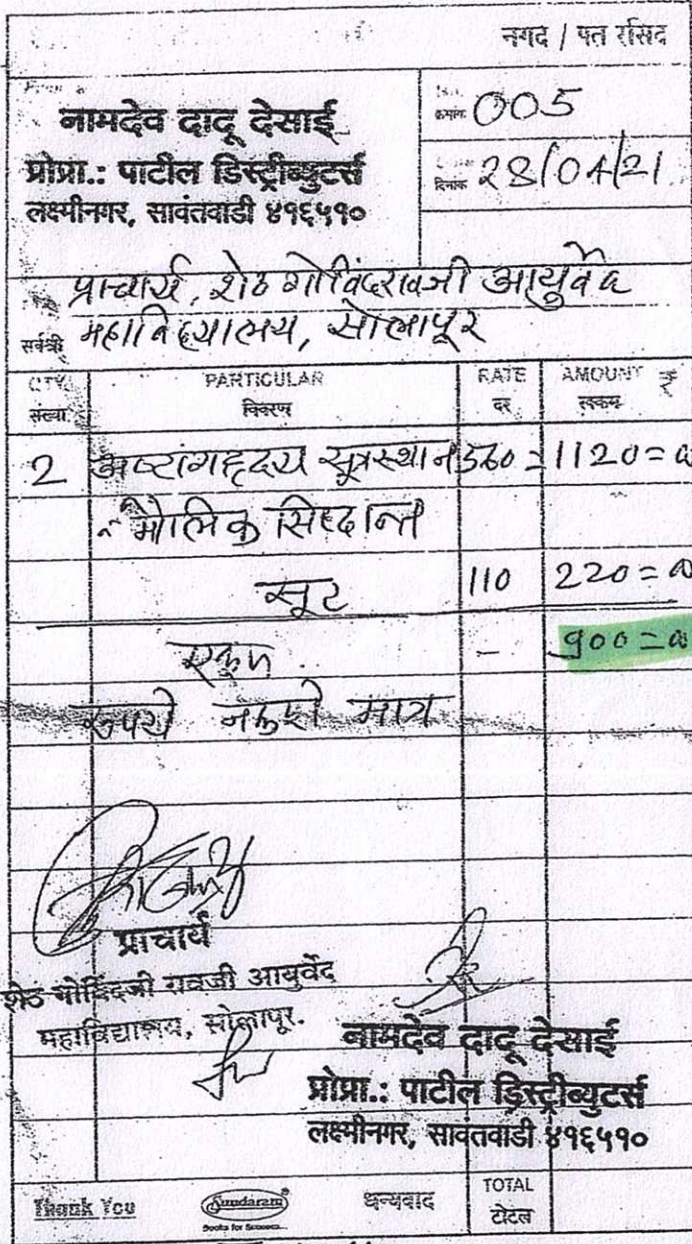 नगद / पत रसिद
नामदेव दादू देसाई
प्रोप्रा.: पाटील डिस्ट्रीब्युटर्स
लक्ष्मीनगर, सावंतवाडी ४१६५१०
क्रमांक 005
दिनांक 28/04/21
प्राचार्य, शेठ गोविंदरावजी आयुर्वेद
सर्वश्री महाविद्यालय, सोलापूर
QTY. PARTICULAR RATE AMOUNT ₹
संख्या विवरण दर रक्कम
2 अष्टांगहृदय सूत्रस्थान 560 = 1120 = 00
मौलिक सिद्धान्त
सूट 110 220 = 00
एकुण - 900 = 00
रुपये नऊशे मात्र
प्राचार्य
शेठ गोविंदजी रावजी आयुर्वेद
महाविद्यालय, सोलापूर.
नामदेव दादू देसाई
प्रोप्रा.: पाटील डिस्ट्रीब्युटर्स
लक्ष्मीनगर, सावंतवाडी ४१६५१०
Thank You Sundaram® धन्यवाद TOTAL
Books for Success... टोटल